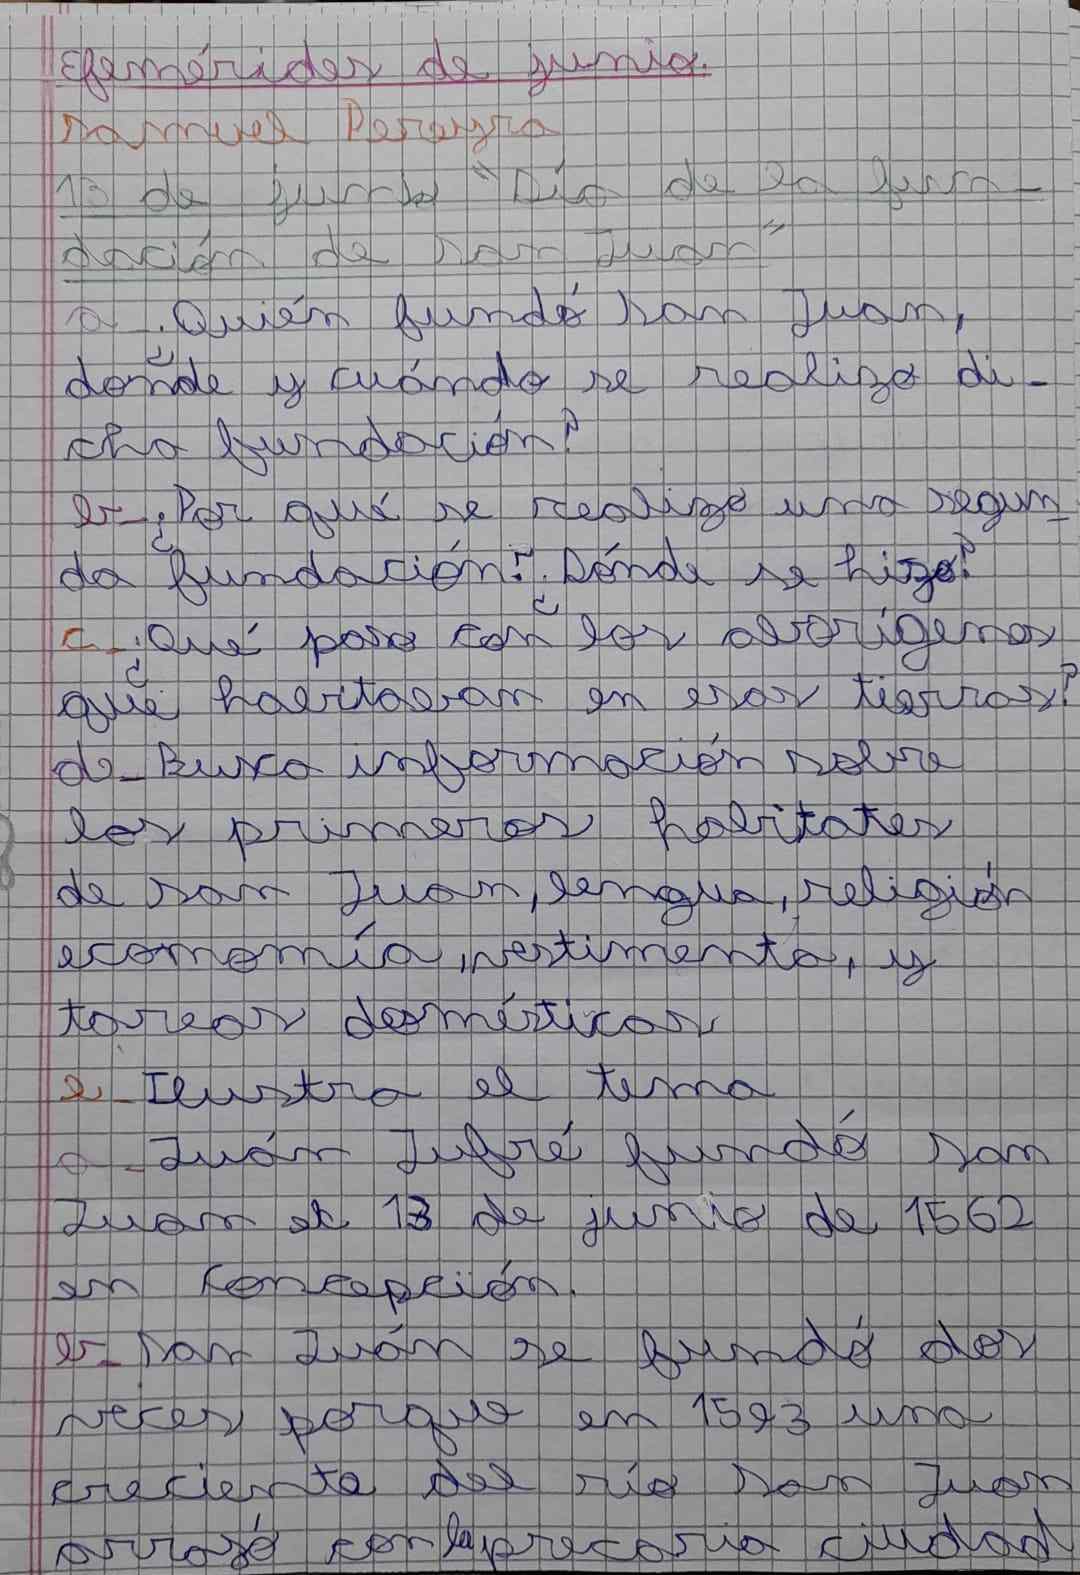 Efemérides de junio.
Samuel Pereyra
13 de junio "Día de la fun-
dación de San Juan"
a_¿Quién fundó San Juan,
donde y cuándo se realizo di-
cha fundación?
b_¿Por qué se realizó una segun_
da fundación? ¿Dónde se hizo?
c_¿Qué paso con los aborígenes
qué habitaban en esas tierras?
d_Busca información sobre
los primeros habitates
de San Juan, lengua, religión
economía, vestimenta, y
tareas domésticas
e_Ilustra el tema
a_Juán Jufré fundó San
Juan el 13 de junio de 1562
en Concepción.
b_San Juán se fundó dos
veces porque en 1593 una
creciente del río San Juan
arrasó con la precaria ciudad